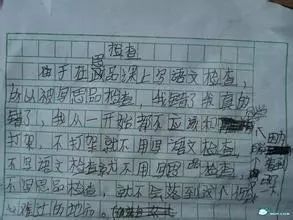 检查
由于在思品课上写语文检查,
所以被写思品检查,我错了我真的
错了,我从一开始都不应该和
打架,不打架就不用写语文检查,
不写语文检查就不用写思品检查,
不写思品检查,就不会落到这个
难过的地步。